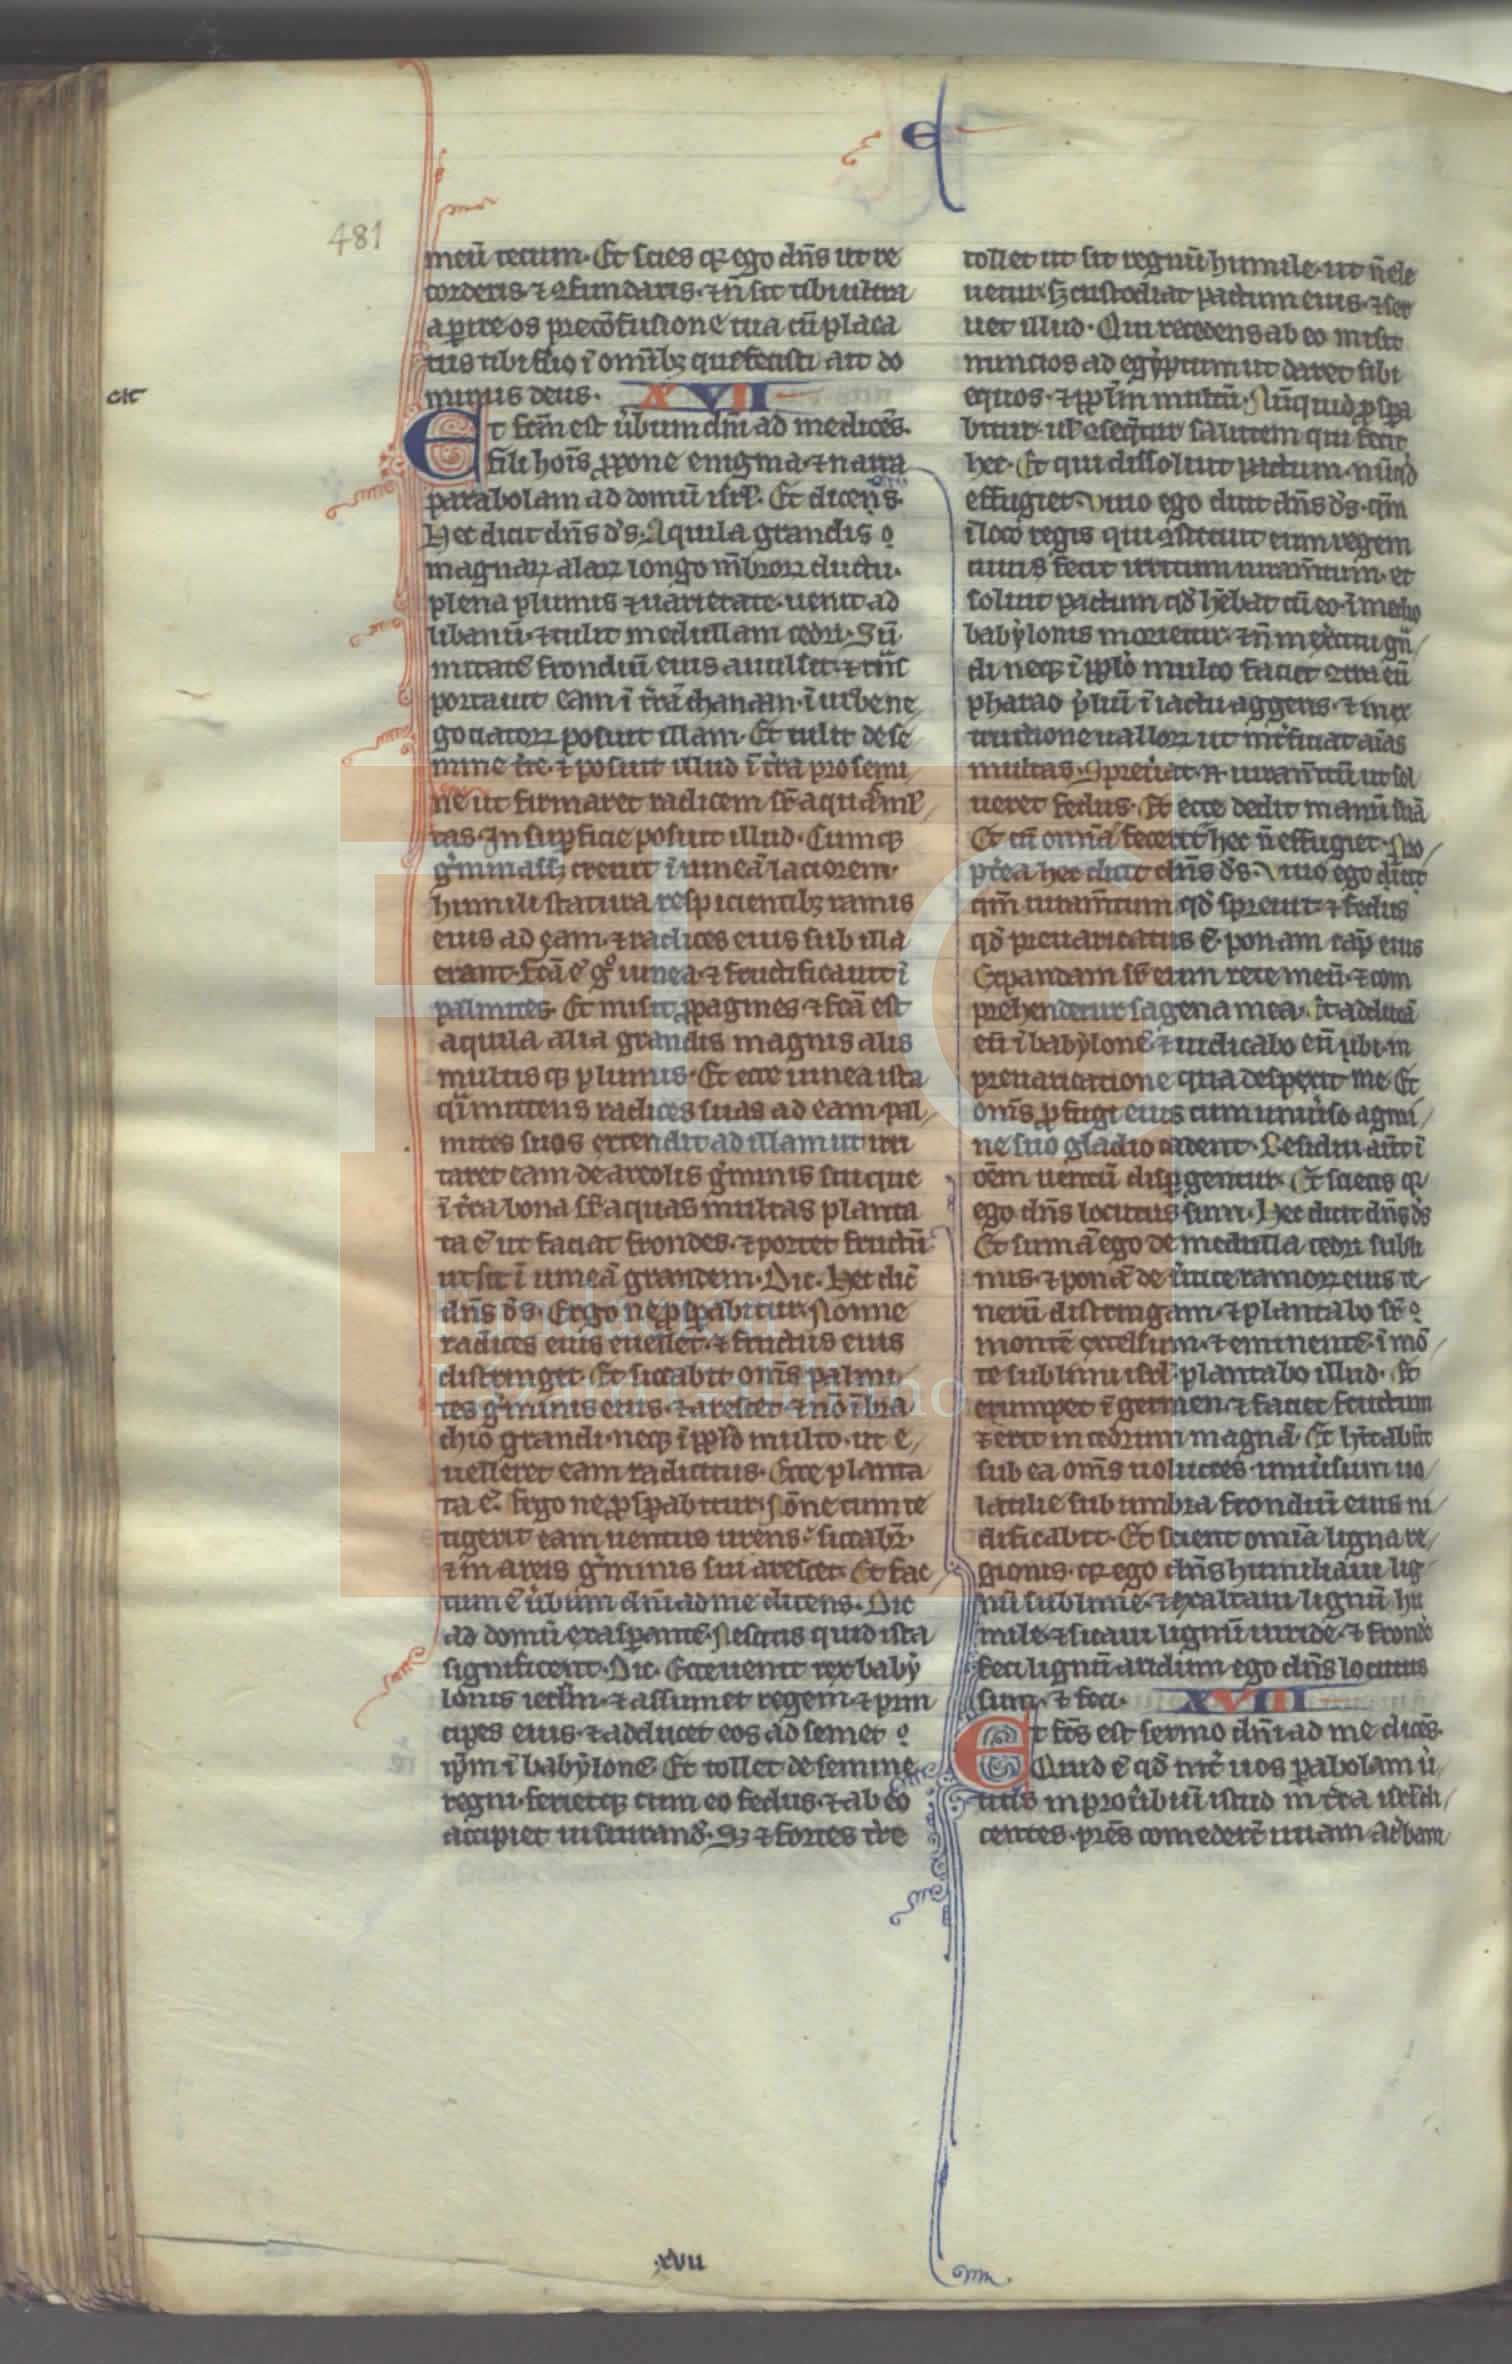 E
481
meū tecum. Et scies qꝛ ego dn̄s ut re
corderis. ⁊ ꝯfundaris. ⁊ n̄ sit tibi ultra
aꝑire os pre cōfusione tua cū placa
tus tibi fůo ī om̄ibꝫ que fecisti ait do
minus deus. XVII
Et fc̄m est ůbum dn̄i ad me dicēs.
fili hoīs ꝓpone enigma. ⁊ narra
parabolam ad domū isrl̄. Et dicens.
Hec dicit dn̄s dˢ. Aquila grandis
magnaꝝ alaꝝ longo mēbroꝝ ductu.
plena plumis ⁊ uarietate. uenit ad
libanū. ⁊ tulit medullam cedri. Sū
mitatē frondiū eius auulsit. ⁊ tn̄s
portauit eam ī t̄rā chanaan. ī urbe ne
gociatoꝝ posuit illam. Et tulit de se
mine t̄re. ⁊ posuit illud ī t̄ra pro semi
ne ut firmaret radicem sr̄ aquas ml̄
tas. In suꝑficie posuit illud. Cumqꝫ
gͥminassꝫ creuit ī uineā laciorem.
humili statura respicientibꝫ ramis
eius ad eam. ⁊ radices eius sub illa
erant. fc̄a ē gͦ uinea ⁊ fructificauit ī
palmites. Et misit ꝓpagines. ⁊ fc̄a est
aquila alia grandis magnis alis
multisqꝫ plumis. Et ecce uinea ista
qͣi mittens radices suas ad eam. pal
mites suos extendit ad illam ut irri
taret eam de areolis gͥminis sui que
ī t̄ra bona sr̄ aquas multas planta
ta ē ut faciat frondes. ⁊ portet fructū
ut sit ī uineā grandem. Dic. Hec dic̄
dn̄s dˢ. Ergo ne ꝓsꝑabitur. Nonne
radices eius euellet. ⁊ fructus eius
distringet. Et siccabit om̄s palmi
tes gͥminis eius. ⁊ arescet. ⁊ nō ī bra
chio grandi. neqꝫ ī pplo multo. ut e
uelleret eam radicitus. Ecce planta
ta ē. Ergo ne ꝓsꝑabitur. Nōne cum te
tigerit eam uentus urens. siccabit̄.
⁊ in areis gͥminis sui arescet. Et fac
tum ē ůbum dn̄i ad me dicens. Dic
ad domū exasꝑantē. Nescitis quid ista
significent. Dic. Ecce uenit rex baby
lonis ierl̄m. ⁊ assumet regem. ⁊ prin
cipes eius. ⁊ adducet eos ad semet
ip̄m ī babylonē. Et tollet de semine
regni. ferietqꝫ cum eo fedus. ⁊ ab eo
accipiet iusiurandͫ. Sꝫ ⁊ fortes t̄re
tollet ut sit regnū humile. ut n̄ ele
uetur. sꝫ custodiat pactum eius. ⁊ ser
uet illud. Qui recedens ab eo misit
nuncios ad egyptum ut daret sibi
equos. ⁊ pplm̄ multū. Nūquid ꝓsꝑa
bitur. ul̄ ꝯseqͥtur salutem qui fecit
hec. Et qui dissoluit pactum. nūqͥd
effugiet. Viuo ego dicit dn̄s dˢ. qm̄
ī loco regis qui ꝯstituit eum regem
cuius fecit irritum iuram̄tum. et
soluit pactum qd̄ hēbat cū eo. ī medio
babylonis morietur. ⁊ n̄ in exercitu grā
di neqꝫ ī pplo multo faciet ꝯtra eū
pharao prl̄iū. ī iactu aggeris. ⁊ in ex
tructione ualloꝝ ut int̄ficiat aīas
multas. Spreuͣat. n̄. iuram̄tū ut sol
ueret fedus. Et ecce dedit manū suā
Et cū omīa fecerit hec n̄ effugiet. Pro
pt̄ea hec dicit dn̄s dˢ. Viuo ego dicit
qm̄ iuram̄tum qd̄ spreuit. ⁊ fedus
qd̄ preuaricatus ē. ponam cap̄ eius
Expandam sr̄ eum rete meū. ⁊ com
prehendetur sagena mea. Et adducā
eū ī babylonē ⁊ iudicabo eū ibi. in
preuaricatione qua despexit me. Et
om̄s ꝓfugi eius cum uniůso agmi
ne suo gladio cadent. Residui aūt ī
oēm uentū disꝑgentur. Et scietis qꝛ
ego dn̄s locutus sum. Hec dicit dn̄s dˢ
Et sumā ego de medulla cedri subli
mis. ⁊ ponā de ůtice ramoꝝ eius te
nerū distringam. ⁊ plantabo sr̄
montē excelsum. ⁊ eminentē. ī mō
te sublimi isrl̄. plantabo illud. Et
erumpet ī germen. ⁊ faciet fructum
⁊ erit in cedrum magnā. Et hītabūt
sub ea om̄s uolucres. uniůsum uo
latile sub umbra frondiū eius ni
dificabit. Et scient omīa ligna re
gionis. qꝛ ego dn̄s humiliaui lig
nū sublime. ⁊ exaltaui lignū hu
mile. ⁊ siccaui lignū uiride. ⁊ frondē
feci lignū aridum. ego dn̄s locutus
sum. ⁊ feci. XVIII
Et fc̄s est sermo dn̄i ad me dicēs.
Quid ē qd̄ int̄ uos ꝑabolam ů
titis in prouͥbiū istud in t̄ra isrl̄ di
centes. pr̄es comederūt uuam acͥbam
xvii